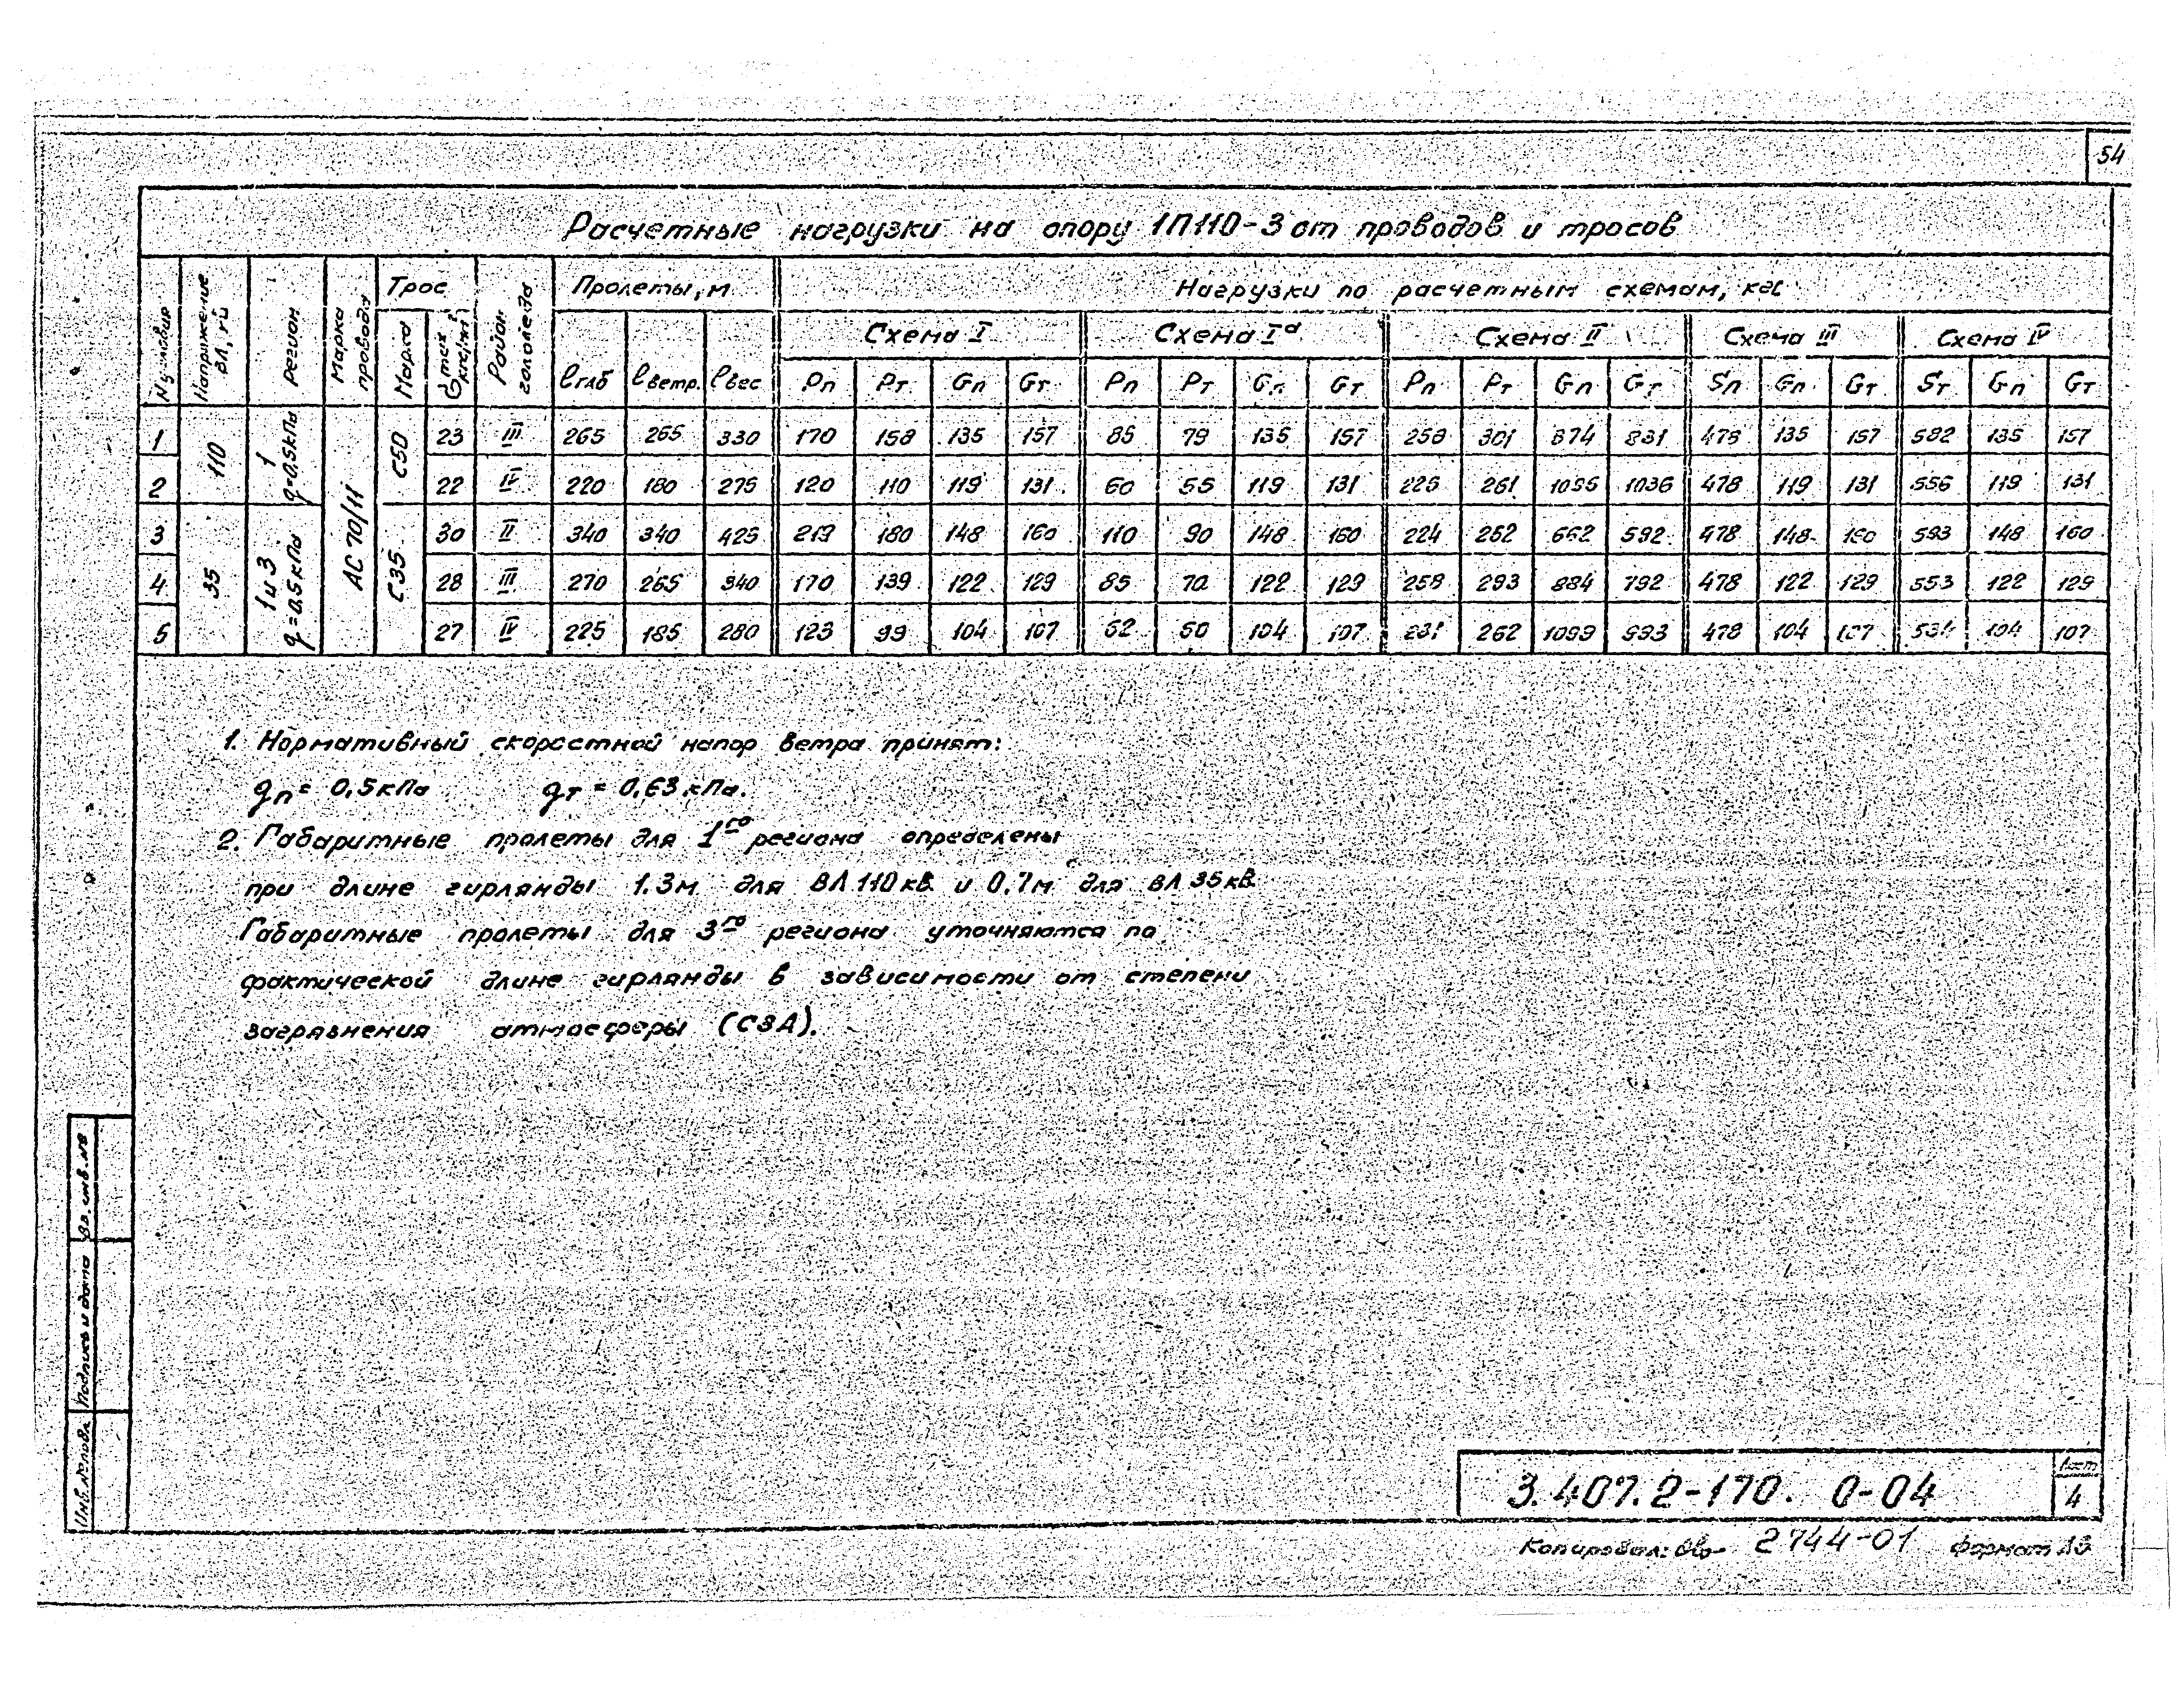 54
Расчетные нагрузки на опору 1П110-3 от проводов и тросов
№ Напряжение ВЛ, регион Марка провода Трос Район гололеда Пролеты, м Нагрузки по расчетным схемам, кгс
Марка σmax lгаб lветр. lвес Схема I Схема Iа Схема II Схема III Схема IV
Pп Pт Gп Gт Pп Pт Gп Gт Pп Pт Gп Gт Sп Gп Gт Sт Gп Gт
1 110 1 q=0,5кПа АС 70/11 С50 23 III 265 265 330 170 158 135 157 85 79 135 157 258 301 874 831 478 135 157 582 135 157
2 22 IV 220 180 275 120 110 119 131 60 55 119 131 226 261 1036 478 119 131 556 119 131
3 35 1 и 3 q=0,5кПа С35 30 II 340 340 425 219 180 148 160 110 90 148 160 224 252 662 592 478 148 160 593 148 160
4 28 III 270 265 340 170 139 122 129 85 70 122 129 258 293 884 792 478 122 129 553 122 129
5 27 IV 225 185 280 123 99 104 107 62 50 104 107 231 262 1099 993 478 104 107 104 107
1. Нормативный скоростной напор ветра принят:
qп = 0,5 кПа qт = 0,63 кПа.
2. Габаритные пролеты для 1го региона определены
при длине гирлянды 1.3м для ВЛ 110 кВ и 0,7м для ВЛ 35 кВ
Габаритные пролеты для 3го региона уточняются по
фактической длине гирлянды в зависимости от степени
загрязнения атмосферы (СЗА).
Вз. инв. №
Подпись и дата
Инв. № подл.
3.407.2-170. 0-04
Лист
4
Копировал: 2744-01 Формат А3